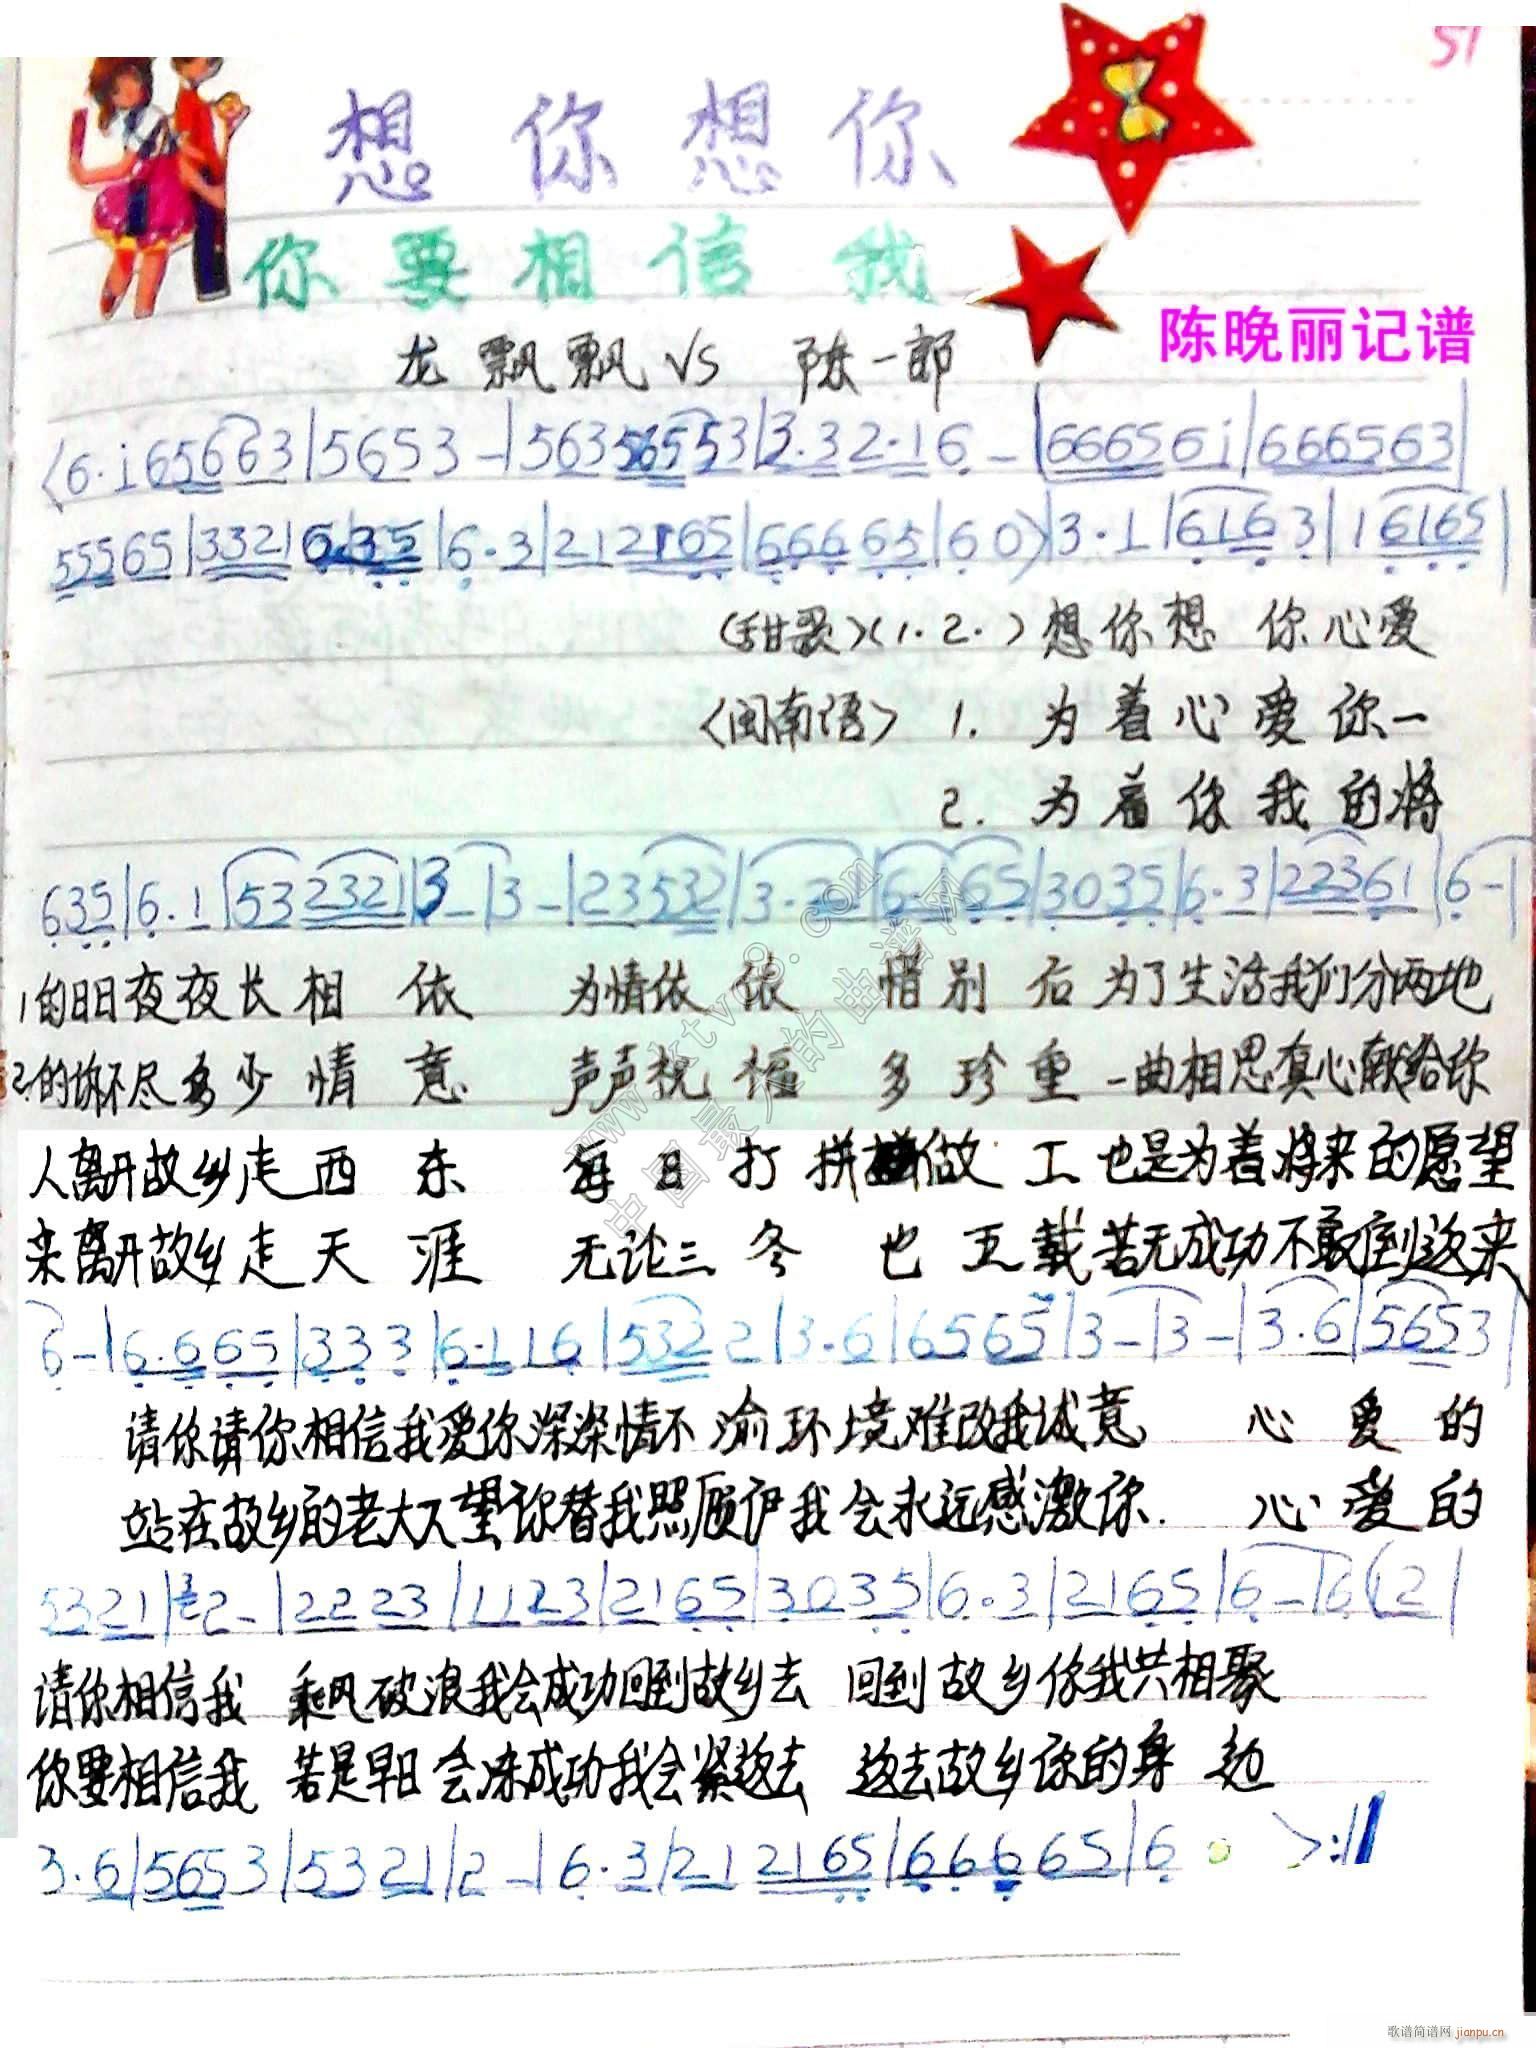 51
想你想你
你要相信我
龙飘飘 VS 陈一郎
陈晚丽记谱
(6·i65663|5653-|56356553|3·32·16-|666561|666563|
55565|3321635|6·3|212165|66665|60)|3·1|6163|16165|
(甜歌)(1.2.)想你想 你心爱
〈闽南语〉 1. 为着心爱你一
2. 为着你我的将
635|6·1|532321|3-|3-|23532|3·2|6·65|3035|6·3|22361|6-|
1的日日夜夜长相依 为情依依 惜别后为了生活我们分两地
2.的诉不尽多少情意 声声祝福 多珍重一曲相思真心献给你
人离开故乡走西东 每日打拼做工也是为着将来的愿望
来离开故乡走天涯 无论三冬也五载若无成功不敢倒返来
6-|6·665|333|6·116|5322|3·6|6565|3-|3-|3·6|5653|
请你请你相信我爱你深深情不渝环境难改我诚意 心爱的
站在故乡的老大人望你替我照顾伊我会永远感激你. 心爱的
5321|2-|2223|1123|2165|3035|6·3|2165|6-|6(12|
请你相信我 乘风破浪我会成功回到故乡去 回到故乡你我共相聚
你要相信我 若是早日会冻成功我会紧返去 返去故乡你的身边
3·6|5653|5321|2-|6·3|212165|66665|6· >:‖
www.ktvc8.com
中国最人的曲谱网
歌谱简谱网 jianpu.cn